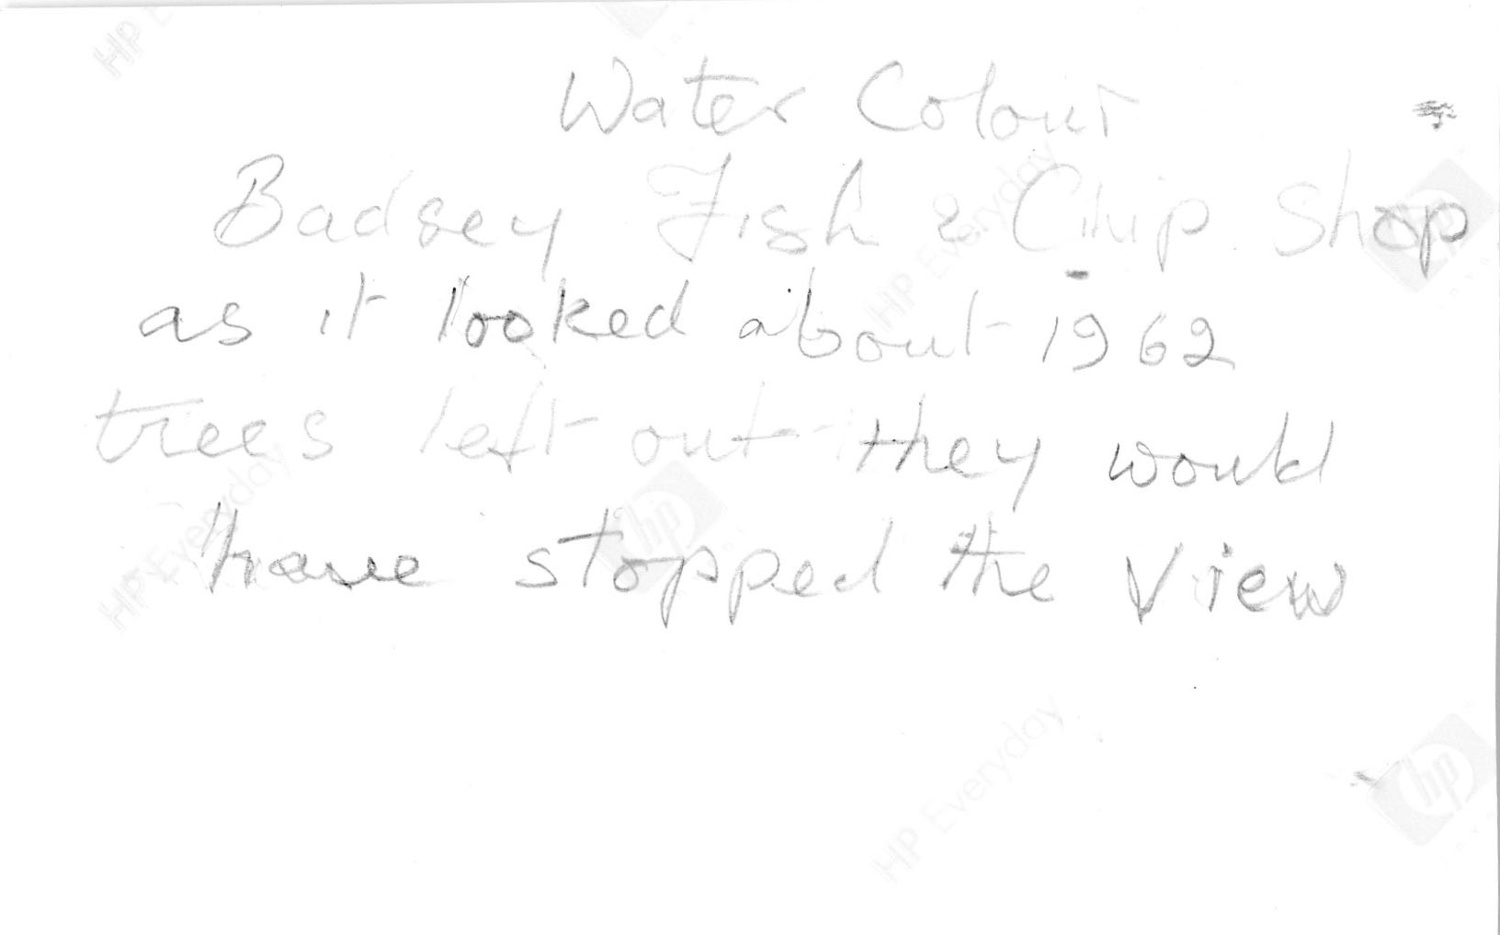 Water Colour
Badsey Fish & Chip Shop
as it looked about 1962
trees left out they would
have stopped the View
HP Everyday
hp
HP Everyday
HP Everyday
hp
HP Everyday
hp